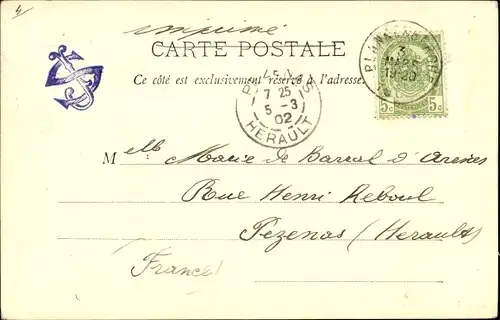 4
imprimé
CARTE POSTALE
Ce côté est exclusivement réservé à l'adresse.
PÉZENAS
7 25
5 - 3
02
HERAULT
3
MARS
5c 5c
Melle Marie de Barral d'Arènes
Rue Henri Reboul
Pézenas (Herault)
France